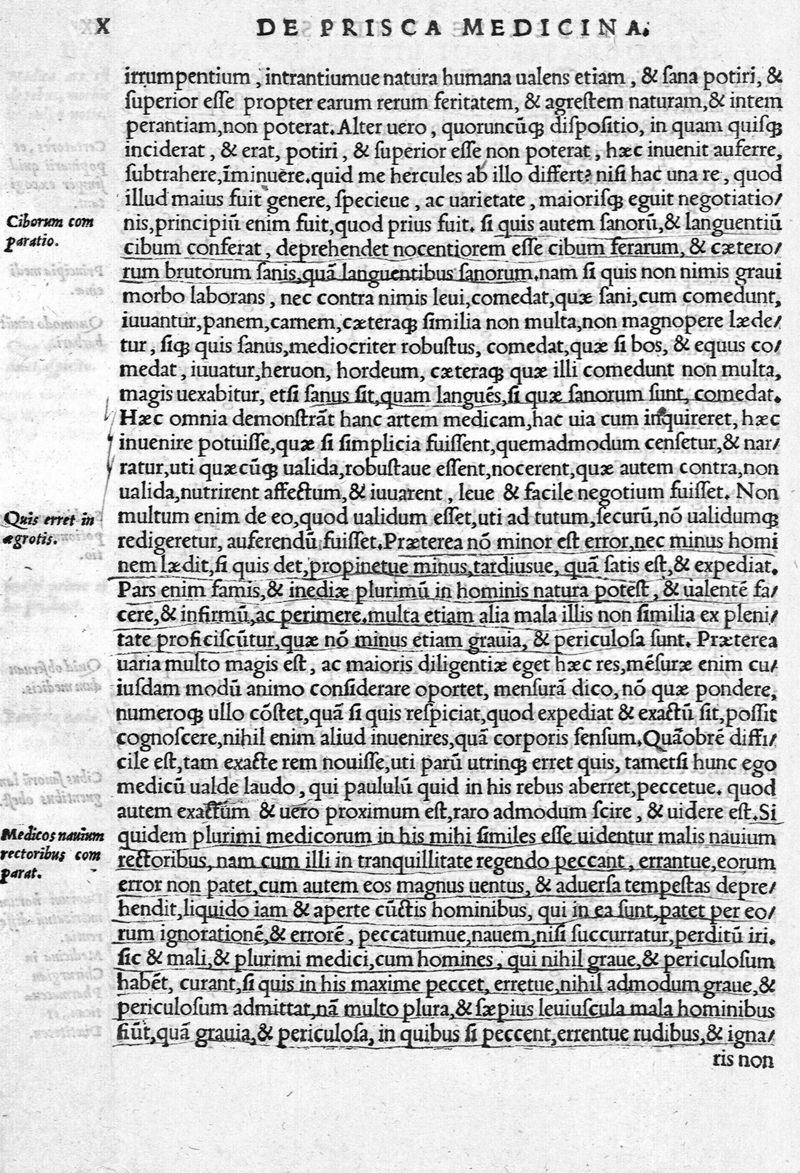 X DE PRISCA MEDICINA.
irrumpentium, intrantiumue natura humana ualens etiam, & ſana potiri, &
ſuperior eſſe propter earum rerum feritatem, & agreſtem naturam,& intem
perantiam,non poterat.Alter uero, quoruncūqꝫ diſpoſitio, in quam quiſqꝫ
inciderat, & erat, potiri, & ſuperior eſſe non poterat, hæc inuenit auferre,
ſubtrahere,īminuere.quid me hercules ab illo differt? niſi hac una re, quod
illud maius fuit genere, ſpecieue, ac uarietate, maioriſqꝫ eguit negotiatio/
Ciborum com
paratio.
nis,principiū enim fuit,quod prius fuit. ſi quis autem ſanorū,& languentiū
cibum conferat, deprehendet nocentiorem eſſe cibum ferarum, & cætero/
rum brutorum ſanis,quā languentibus ſanorum.nam ſi quis non nimis graui
morbo laborans, nec contra nimis leui,comedat,quæ ſani,cum comedunt,
iuuantur,panem,carnem,cæteraqꝫ ſimilia non multa,non magnopere læde/
tur, ſiqꝫ quis ſanus,mediocriter robuſtus, comedat,quæ ſi bos, & equus co/
medat, iuuatur,heruon, hordeum, cæteraqꝫ quæ illi comedunt non multa,
magis uexabitur, etſi ſanus ſit,quam languēs,ſi quæ ſanorum ſunt, comedat.
Hæc omnia demonſtrāt hanc artem medicam,hac uia cum inquireret, hæc
inuenire potuiſſe,quæ ſi ſimplicia fuiſſent,quemadmodum cenſetur,& nar/
ratur,uti quæcūqꝫ ualida,robuſtaue eſſent,nocerent,quæ autem contra,non
ualida,nutrirent affectum,& iuuarent, leue & facile negotium fuiſſet. Non
Quis erret in
ægrotis.
multum enim de eo,quod ualidum eſſet,uti ad tutum,ſecurū,nō ualidumqꝫ
redigeretur, auferendū fuiſſet.Præterea nō minor eſt error,nec minus homi
nem lædit,ſi quis det,propinetue minus,tardiusue, quā ſatis eſt,& expediat.
Pars enim famis,& inediæ plurimū in hominis natura poteſt, & ualentē fa/
cere,& infirmū,ac perimere.multa etiam alia mala illis non ſimilia ex pleni/
tate proficiſcūtur,quæ nō minus etiam grauia, & periculoſa ſunt. Præterea
uaria multo magis eſt, ac maioris diligentiæ eget hæc res,mēſuræ enim cu/
iuſdam modū animo conſiderare oportet, menſurā dico,nō quæ pondere,
numeroqꝫ ullo cōſtet,quā ſi quis reſpiciat,quod expediat & exactū ſit,poſſit
cognoſcere,nihil enim aliud inuenires,quā corporis ſenſum.Quāobrē diffi/
cile eſt,tam exacte rem nouiſſe,uti parū utrinqꝫ erret quis, tametſi hunc ego
medicū ualde laudo, qui paululū quid in his rebus aberret,peccetue. quod
autem exactum & uero proximum eſt,raro admodum ſcire, & uidere eſt.Si
Medicos nauium
rectoribus com
parat.
quidem plurimi medicorum in his mihi ſimiles eſſe uidentur malis nauium
rectoribus, nam cum illi in tranquillitate regendo peccant, errantue,eorum
error non patet,cum autem eos magnus uentus, & aduerſa tempeſtas depre/
hendit,liquido iam & aperte cūctis hominibus, qui in ea ſunt,patet per eo/
rum ignorationē,& errorē, peccatumue,nauem,niſi ſuccurratur,perditū iri.
ſic & mali,& plurimi medici,cum homines, qui nihil graue,& periculoſum
habēt, curant,ſi quis in his maxime peccet, erretue,nihil admodum graue,&
periculoſum admittat,nā multo plura,& ſæpius leuiuſcula mala hominibus
fiūt,quā grauia,& periculoſa, in quibus ſi peccent,errentue rudibus,& igna/
ris non